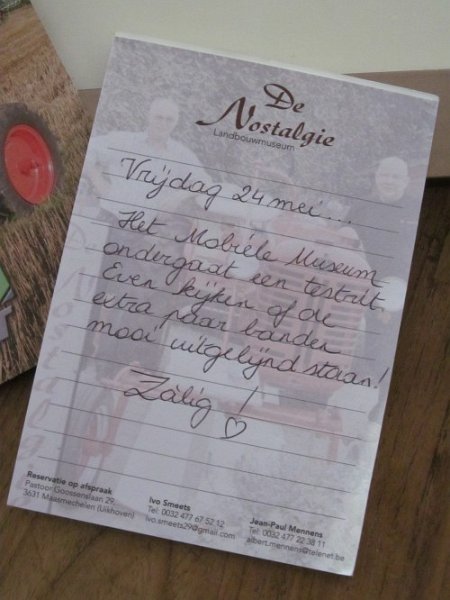 De
Nostalgie
Landbouwmuseum
Vrijdag 24 mei...
Het Mobiele Museum
ondergaat een testrit.
Even kijken of de
extra paar banden
mooi uitgelijnd staan!
Zàlig! ♡
Reservatie op afspraak
Pastoor Goossenslaan 29
3631 Maasmechelen (Uikhoven)
Ivo Smeets
Tel: 0032 477 67 52 12
ivo.smeets29@gmail.com
Jean-Paul Mennens
Tel: 0032 477 22 38 11
albert.mennens@telenet.be